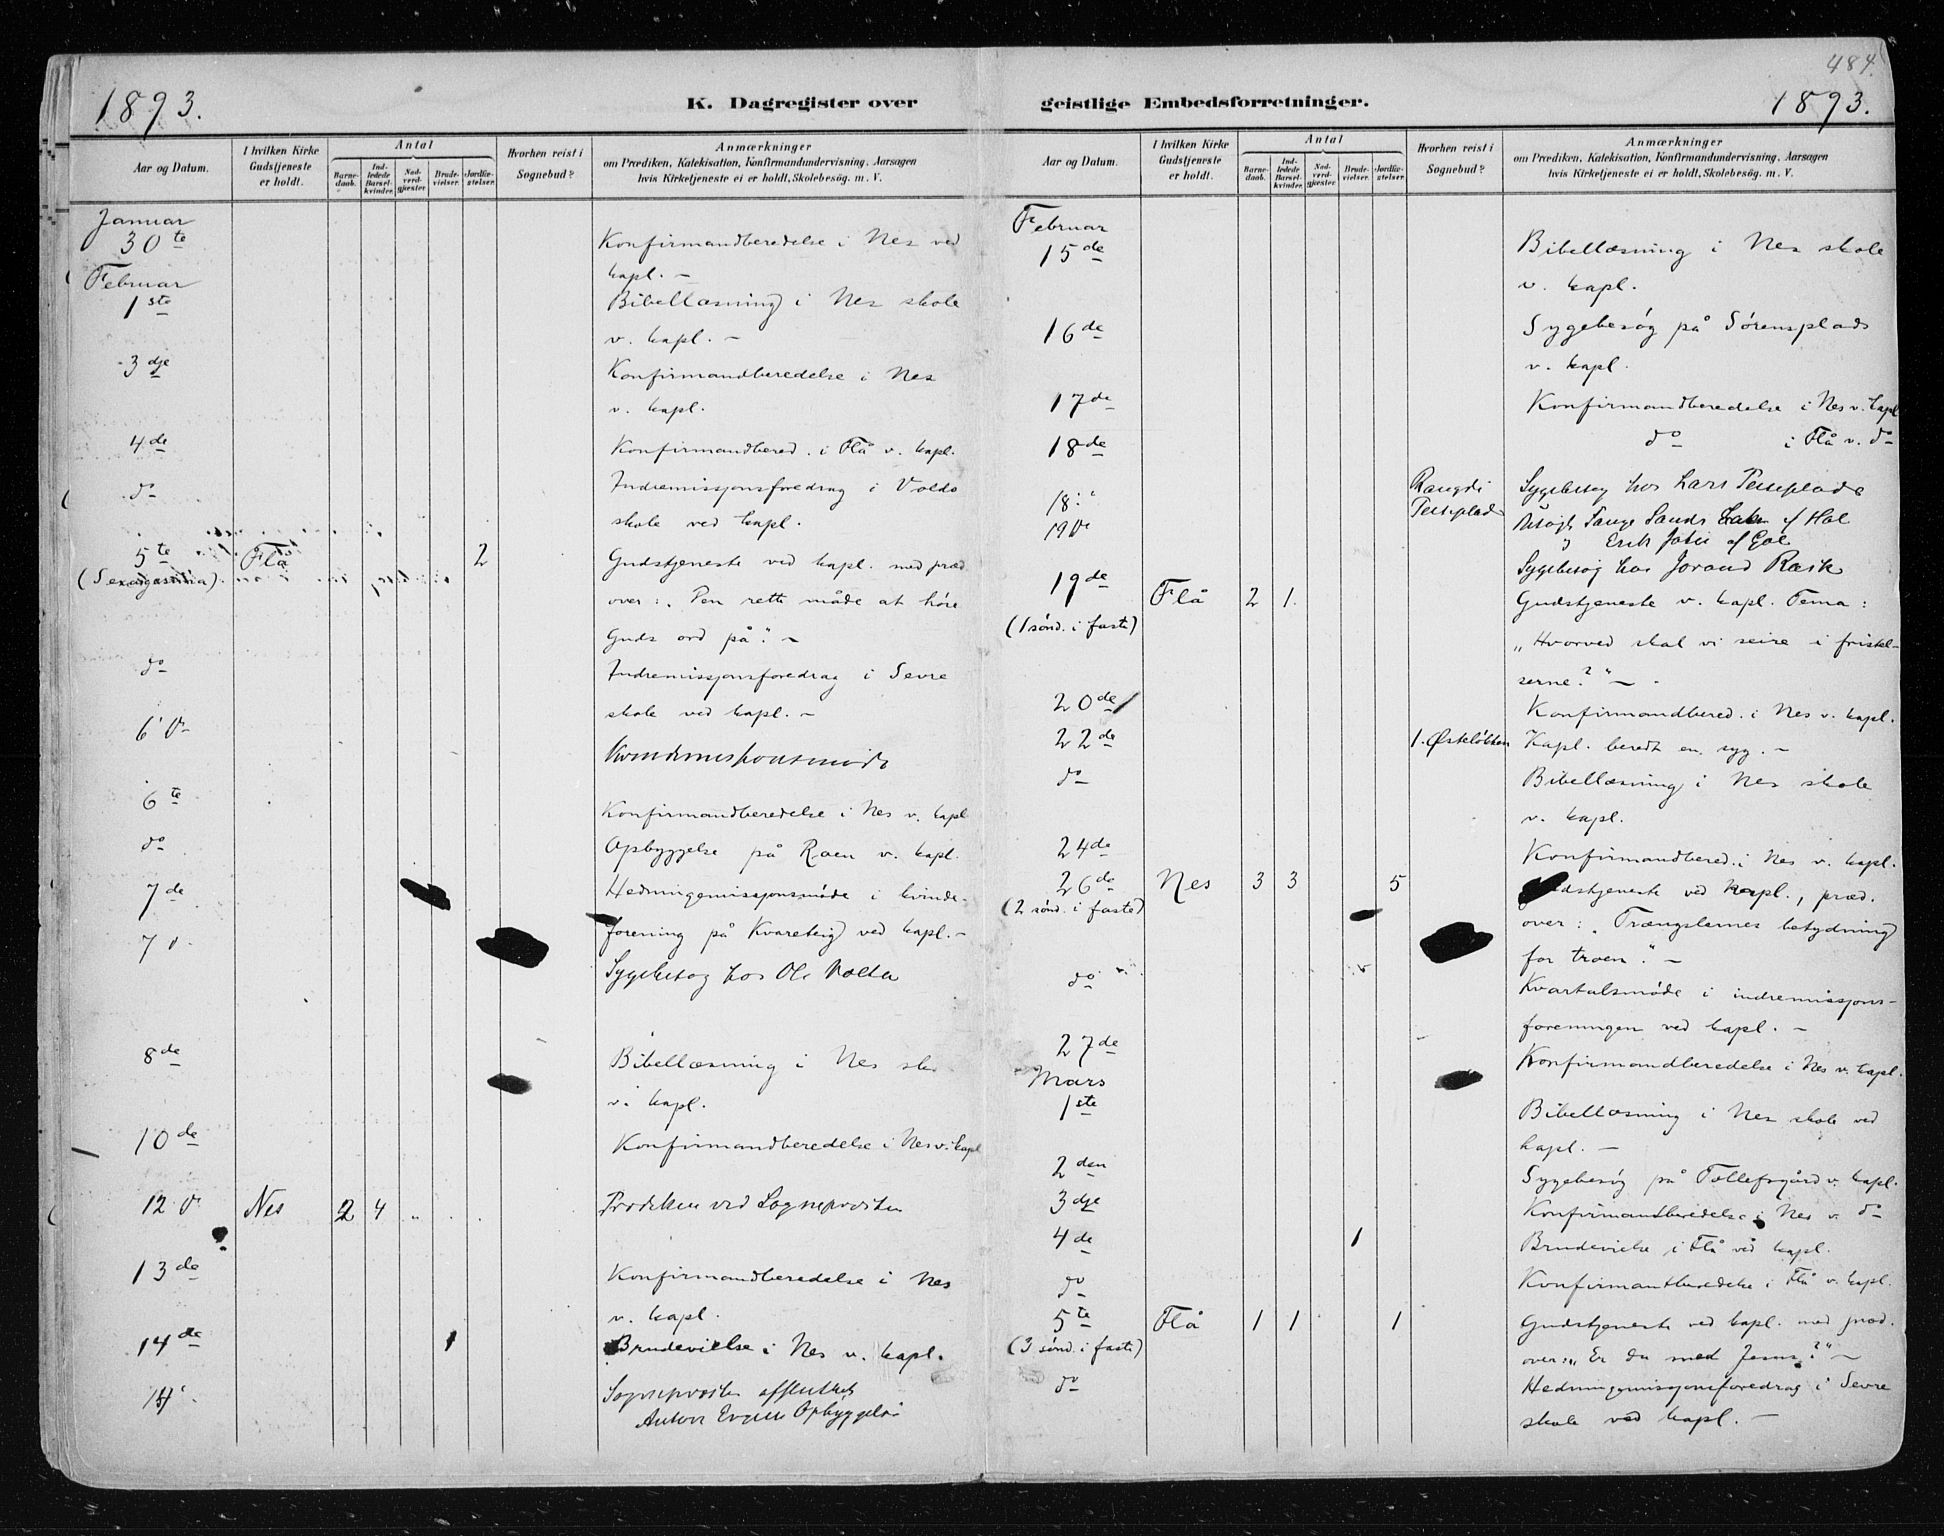 484.
1893.
K. Dagregister over geistlige Embedsforretninger.
1893.
Aar og Datum.
I hvilken Kirke Gudstjeneste er holdt.
Antal
Barnedaab.
Indledede Barselkvinder.
Nadverdgjester.
Brudevielser.
Jordfæstelser.
Hvorhen reist i Sognebud?
Anmærkninger
om Prædiken, Katekisation, Konfirmandundervisning, Aarsagen
hvis Kirketjeneste ei er holdt, Skolebesøg. m. V.
Januar
30te Konfirmandberedelse i Nes ved
kapl. –
Februar
1ste Bibellæsning i Nes skole
v. kapl. –
3dje Konfirmandberedelse i Nes
v. kapl.
4de Konfirmandbered. i Flå v. kapl.
do Indremissjonsforedrag i Volds
skole ved kapl.
5te Flå 2 Gudstjeneste ved kapl. med præd
(Sexagesima) over: „Den rette måde at høre
Guds ord på". –
do Indremissjonsforedrag i Sevre
skole ved kapl. –
6
6te Konfirmandberedelse i Nes v. kapl
do Opbyggelse på Roen v. kapl.
7de Hedningemissjonsmøde i kvinde-
forening på Kvareteig ved kapl. –
7 Sygebesøg hos Ole
8de Bibellæsning i Nes
v. kapl.
10de Konfirmandberedelse i Nes v. kapl
12 Nes 2 4 Prædiken ved Sognepræsten
13de Konfirmandberedelse i Nes
v. kapl.
14de 1 Brudevielse i Nes v. kapl.
14 Sognepræsten
Opbyggelse
Aar og Datum.
I hvilken Kirke Gudstjeneste er holdt.
Antal
Barnedaab.
Indledede Barselkvinder.
Nadverdgjester.
Brudevielser.
Jordfæstelser.
Hvorhen reist i Sognebud?
Anmærkninger
om Prædiken, Katekisation, Konfirmandundervisning, Aarsagen
hvis Kirketjeneste ei er holdt, Skolebesøg. m. V.
Februar
15de Bibellæsning i Nes skole
v. kapl.
16de Sygebesøg på Sørensplads
v. kapl.
17de Konfirmandberedelse i Nes v. kapl
18de do i Flå v. do
18 Sygebesøg hos Lars
19 af Hol
Erik af Gol
Sygebesøg hos
19de Flå 2 1. Gudstjeneste v. kapl. Tema:
(1 sønd. i faste) „Hvorved skal vi seire i fristel-
serne?" –
20de Konfirmandbered. i Nes v. kapl.
22de 1. Kapl. beredt en syg. –
do Bibellæsning i Nes skole
v. kapl.
24de Konfirmandbered. i Nes v. kapl.
26de Nes 3 3 5 Gudstjeneste ved kapl., præd.
(2 sønd. i faste) over: „Trængslernes betydning
for troen". –
do Kvartalsmøde i indremissjons-
foreningen ved kapl. –
27de Konfirmandberedelse i Nes v. kapl.
Mars
1ste Bibellæsning i Nes skole ved
kapl. –
2den Sygebesøg på Tollefsgård v. kapl.
3dje Konfirmandberedelse i Nes v. do
4de 1 Brudevielse i Flå ved kapl.
do Konfirmantberedelse i Flå v. kapl.
5te Flå 1 1 1 Gudstjeneste ved kapl. med præd.
(3 sønd. i faste) over: „Er du med Jesus?" –
do Hedningemissjonsforedrag i Sevre
skole ved kapl. –